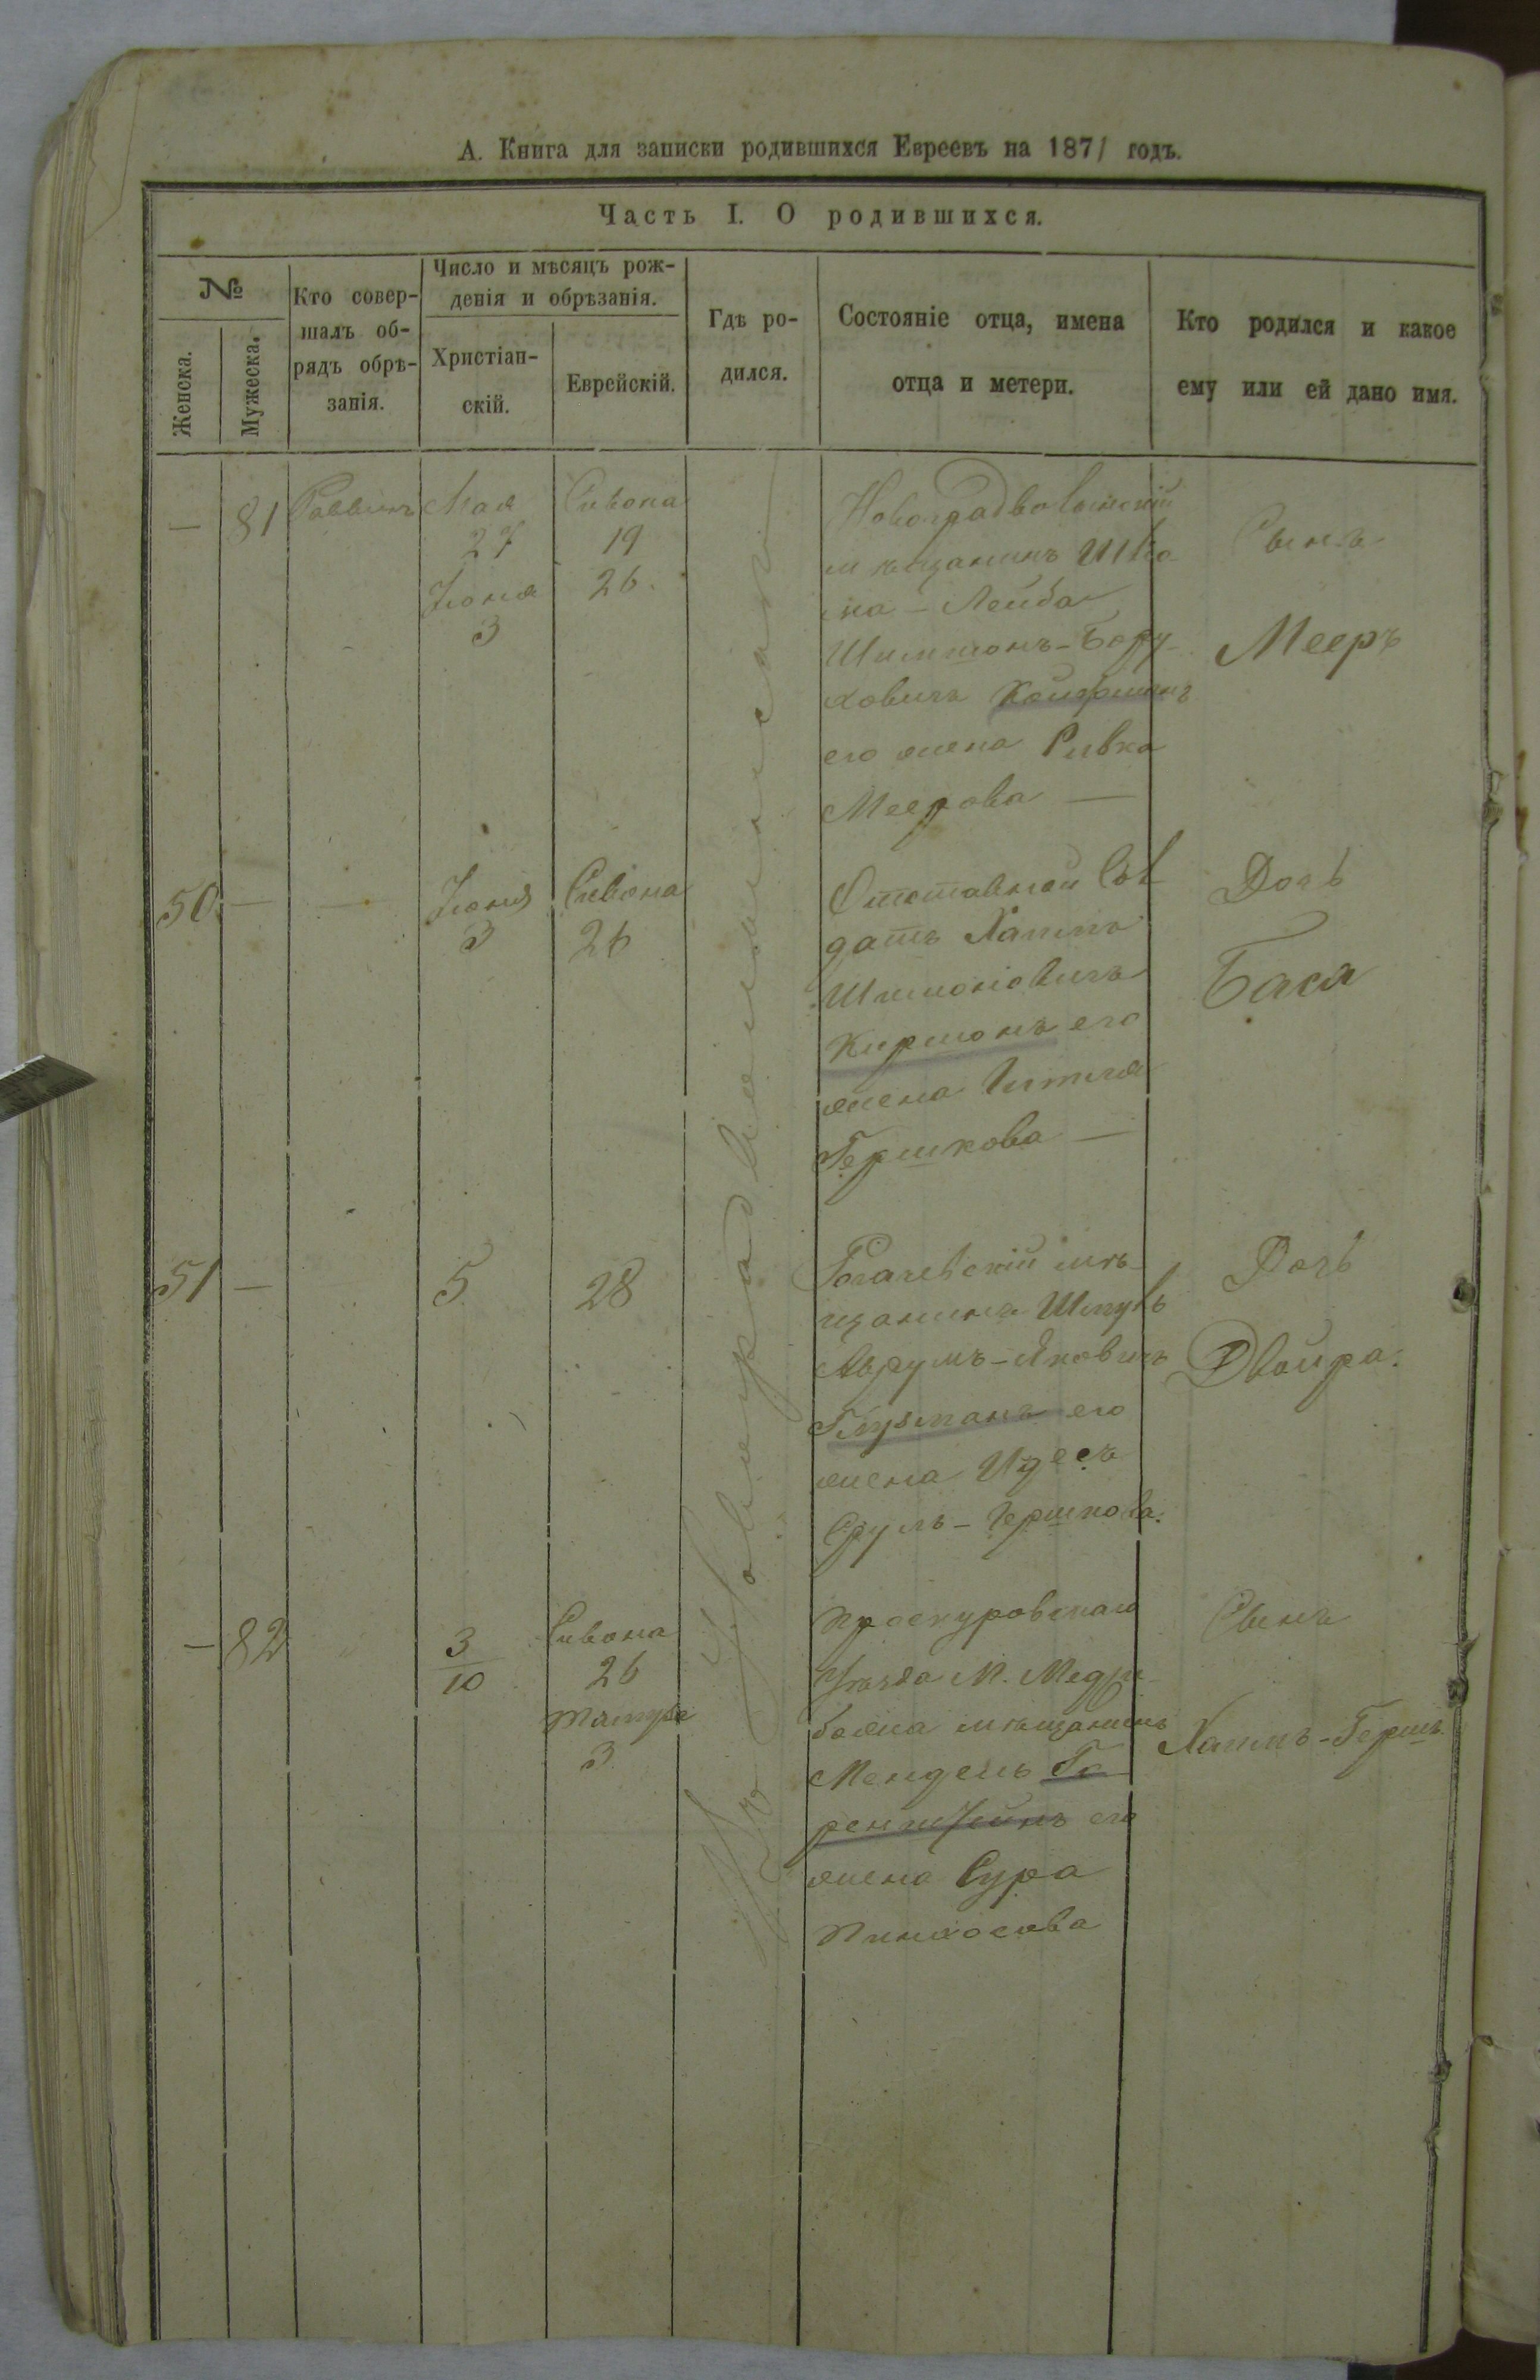 А. Книга для записки родившихся Евреевъ на 1871 годъ.
Часть I. О родившихся.
№
Женска.
Мужеска.
Кто совер-
шалъ об-
рядъ обрѣ-
занія.
Число и мѣсяцъ рож-
денія и обрѣзанія.
Христіан-
скій.
Еврейскій.
Гдѣ ро-
дился.
Состояніе отца, имена
отца и метери.
Кто родился и какое
ему или ей дано имя.
— 81
Раввинъ
Мая
27
Іюня
3
Сивона
19
26.
Новоградволынскій
мѣщанинъ
Лейба
Шимшонъ-Бору-
ховичъ
его жена Ривка
Меерова —
Сынъ
Мееръ
50. — —
Іюня
3
Сивона
26
Отставной Сол
датъ Хаимъ
Шимоновичъ
Киржонъ его
жена
Гершкова —
Дочь
Бася
51 —
5.
28
Рогачевскій мѣ-
щанинъ Шмуль
Аврумъ-Яковичъ
Глузманъ его
жена Идесъ
Сруль-Гершкова.
Дочь
Двойра.
— 82
3
10
Сивона
26
Тамуза
3.
Проскуровскаго
Уѣзда М. Медžи
божа мѣщанинъ
Мендель Го
ренштейнъ его
жена Сура
Пинхосова
Сынъ
Хаимъ-Гершъ.